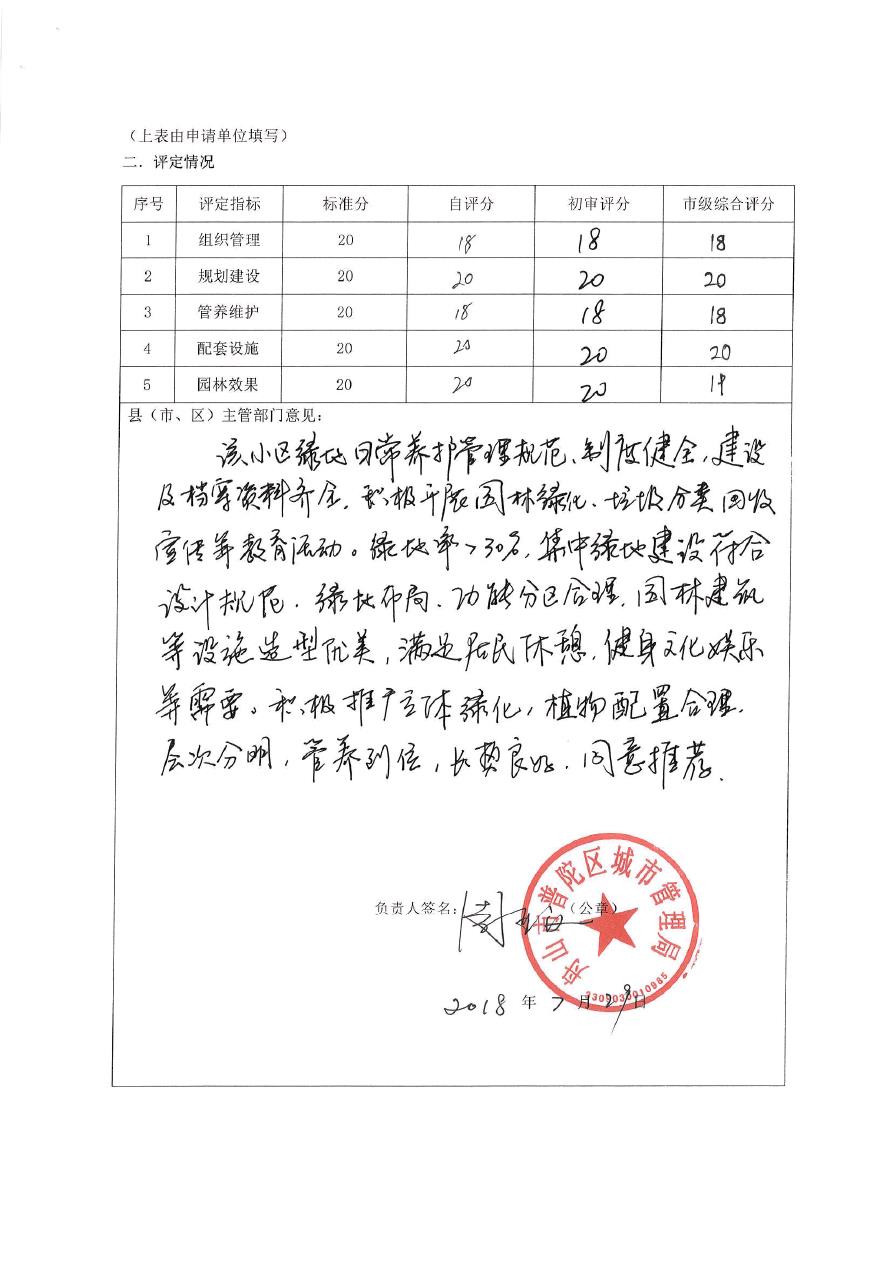 （上表由申请单位填写）
二．评定情况
序号 评定指标 标准分 自评分 初审评分 市级综合评分
1 组织管理 20 18 18 18
2 规划建设 20 20 20 20
3 管养维护 20 18 18 18
4 配套设施 20 20 20 20
5 园林效果 20 20 20 19
县（市、区）主管部门意见：
该小区绿地日常养护管理规范、制度健全，建设
及档案资料齐全，积极开展园林绿化、垃圾分类回收
宣传等教育活动。绿地率>30%，集中绿地建设符合
设计规范．绿地布局、功能分区合理，园林建筑
等设施造型优美，满足居民休憩，健身文化娱乐
等需要。积极推广立体绿化，植物配置合理，
层次分明，管养到位，长势良好．同意推荐．
负责人签名： （公章）
舟山市普陀区城市管理局
3309030010985
2018 年 7 月 29 日